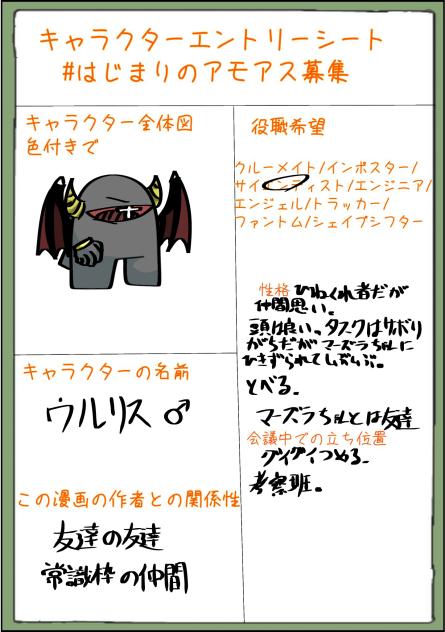 キャラクターエントリーシート
#はじまりのアモアス募集
キャラクター全体図
色付きで
キャラクターの名前
ウルリス♂
この漫画の作者との関係性
友達の友達
常識枠の仲間
役職希望
クルーメイト/インポスター/
サイエンティスト/エンジニア/
エンジェル/トラッカー/
ファントム/シェイプシフター
性格 ひねくれ者だが
仲間思い。
頭は良い。タスクはサボり
がちだがマーズラちゃんに
ひきずられてしぶしぶ。
とべる。
マーズラちゃんとは友達
会議中での立ち位置
グイグイつめる。
考察班。